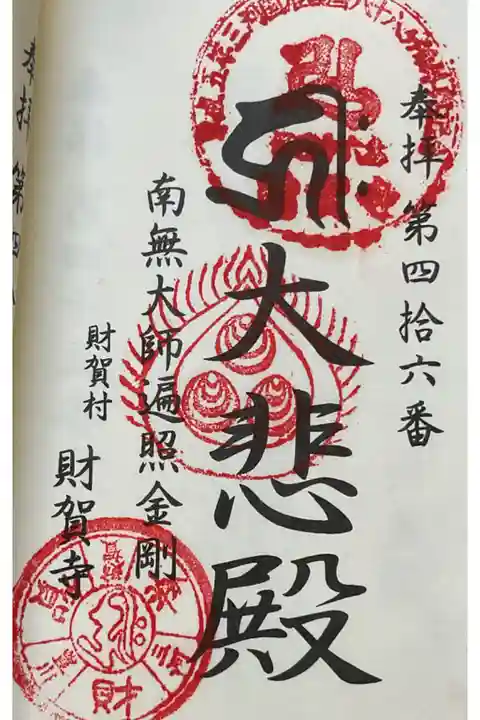 奉拝 第四拾六番
大悲殿
南無大師遍照金剛
財賀村 財賀寺
財
奉拝 第四